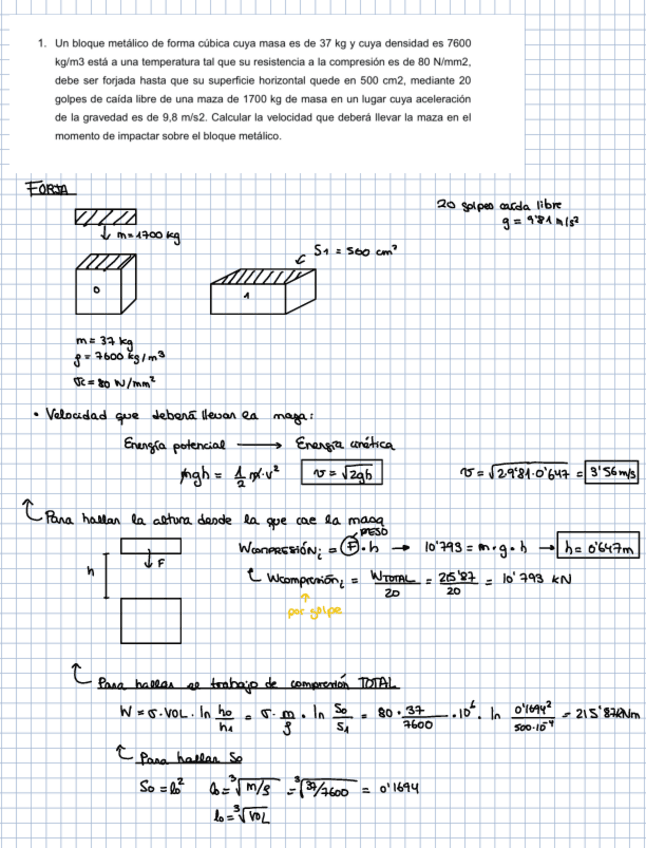 1. Un bloque metálico de forma cúbica cuya masa es de 37 kg y cuya densidad es 7600
kg/m3 está a una temperatura tal que su resistencia a la compresión es de 80 N/mm2,
debe ser forjada hasta que su superficie horizontal quede en 500 cm2, mediante 20
golpes de caída libre de una maza de 1700 kg de masa en un lugar cuya aceleración
de la gravedad es de 9,8 m/s2. Calcular la velocidad que deberá llevar la maza en el
momento de impactar sobre el bloque metálico.
FORJA
20 golpes caída libre
g = 9'81 m/s²
m = 1700 kg
S1 = 500 cm²
0
1
m = 37 kg
ρ = 7600 kg/m³
σc = 80 N/mm²
• Velocidad que deberá llevar la maza:
Energía potencial → Energía cinética
mgh = 1/2 m·v² v = √2gh v = √2·9'81·0'647 = 3'56 m/s
Para hallar la altura desde la que cae la maza
PESO
Wcompresióni = F·h → 10'793 = m·g·h → h = 0'647m
h
F
Wcompresióni = WTOTAL/20 = 215'87/20 = 10'793 kN
por golpe
Para hallar el trabajo de compresión TOTAL
W = σ·VOL·ln h0/h1 = σ·m/ρ·ln S0/S1 = 80·37/7600·10⁶·ln 0'1694²/500·10⁻⁴ = 215'87kNm
Para hallar S0
S0 = l0² l0 = ³√m/ρ = ³√37/7600 = 0'1694
l0 = ³√VOL